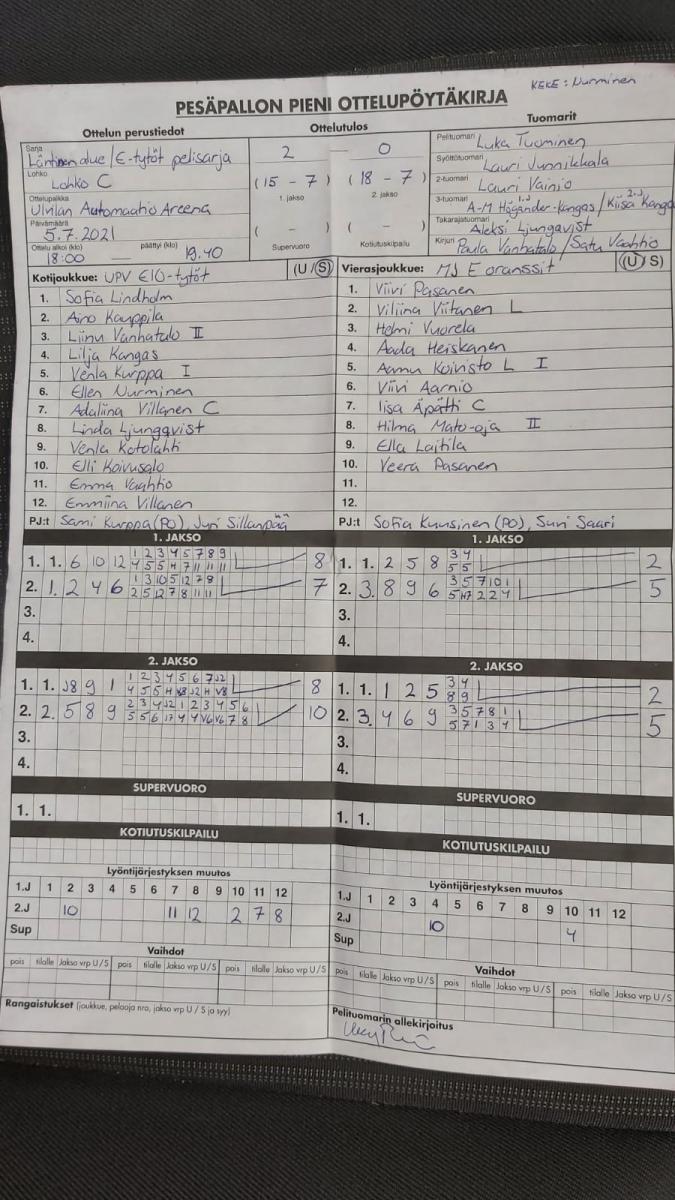 KEKE: Nurminen
PESÄPALLON PIENI OTTELUPÖYTÄKIRJA
Ottelun perustiedot
Ottelutulos
Tuomarit
Sarja
Läntinen alue/E-tytöt pelisarja
2 — 0
Pelituomari Luka Tuominen
Lohko
Lohko C
(15 - 7) (18 - 7)
1. jakso 2. jakso
Syöttötuomari Lauri Junnikkala
2-tuomari Lauri Vainio
Ottelupaikka
Ulvilan Automaahiö Areena
3-tuomari A-M Högånder-Kangas/Kiisa Kangas
1.J 2.J
Päivämäärä
5.7.2021
( - ) ( - )
Takarajatuomari Aleksi Ljungqvist
Ottelu alkoi (klo) päättyi (klo)
18:00 19.40
Supervuoro Kotiutuskilpailu
Kirjuri Paula Vanhatalo/Satu Vaahtio
Kotijoukkue: UPV E10-tytöt (U/S)
1. Sofia Lindholm
2. Aino Kauppila
3. Liinu Vanhatalo II
4. Lilja Kangas
5. Venla Kurppa I
6. Ellen Nurminen
7. Adaliina Villanen C
8. Linda Ljungqvist
9. Venla Kotolahti
10. Elli Koivusalo
11. Emma Vaahtio
12. Emmiina Villanen
PJ:t Sami Kurppa (PO), Juri Sillanpää
Vierasjoukkue: MJ E oranssit (U/S)
1. Viivi Pasanen
2. Viliina Viitanen L
3. Helmi Vuorela
4. Aada Heiskanen
5. Aamu Koivisto L I
6. Viivi Aarnio
7. Iisa Äpätti C
8. Hilma Mato-oja II
9. Ella Laitila
10. Veera Pasanen
11.
12.
PJ:t Sofia Kuusinen (PO), Suvi Saari
1. JAKSO
1. 1. 6 10 12 1 2 3 4 5 7 8 9 8
4 5 5 H 7 11 11 11
2. 1. 2 4 6 1 3 10 5 12 7 8 7
2 5 12 7 8 11 11
3.
4.
1. JAKSO
1. 1. 2 5 8 3 4 2
5 5
2. 3. 8 9 6 3 5 7 10 1 5
5 H7 2 2 4
3.
4.
2. JAKSO
1. 1. J8 9 1 1 2 3 4 5 6 7 J2 8
4 5 5 H V3 J2 H V8
2. 2. 5 8 9 2 3 4 J2 1 2 3 4 5 6 10
5 5 6 17 4 4 V6 V6 7 8
3.
4.
2. JAKSO
1. 1. 1 2 5 3 4 2
8 9
2. 3. 4 6 9 3 5 7 8 1 5
5 7 1 3 4
3.
4.
SUPERVUORO
1. 1.
SUPERVUORO
1. 1.
KOTIUTUSKILPAILU
KOTIUTUSKILPAILU
Lyöntijärjestyksen muutos
1.J 1 2 3 4 5 6 7 8 9 10 11 12
2.J 10 11 12 2 7 8
Sup
Lyöntijärjestyksen muutos
1.J 1 2 3 4 5 6 7 8 9 10 11 12
2.J 10 4
Sup
Vaihdot
pois tilalle Jakso vrp U/S pois tilalle Jakso vrp U/S pois tilalle Jakso vrp U/S
Vaihdot
pois tilalle Jakso vrp U/S pois tilalle Jakso vrp U/S pois tilalle Jakso vrp U/S
Rangaistukset (joukkue, pelaaja nro, jakso vrp U / S ja syy)
Pelituomarin allekirjoitus